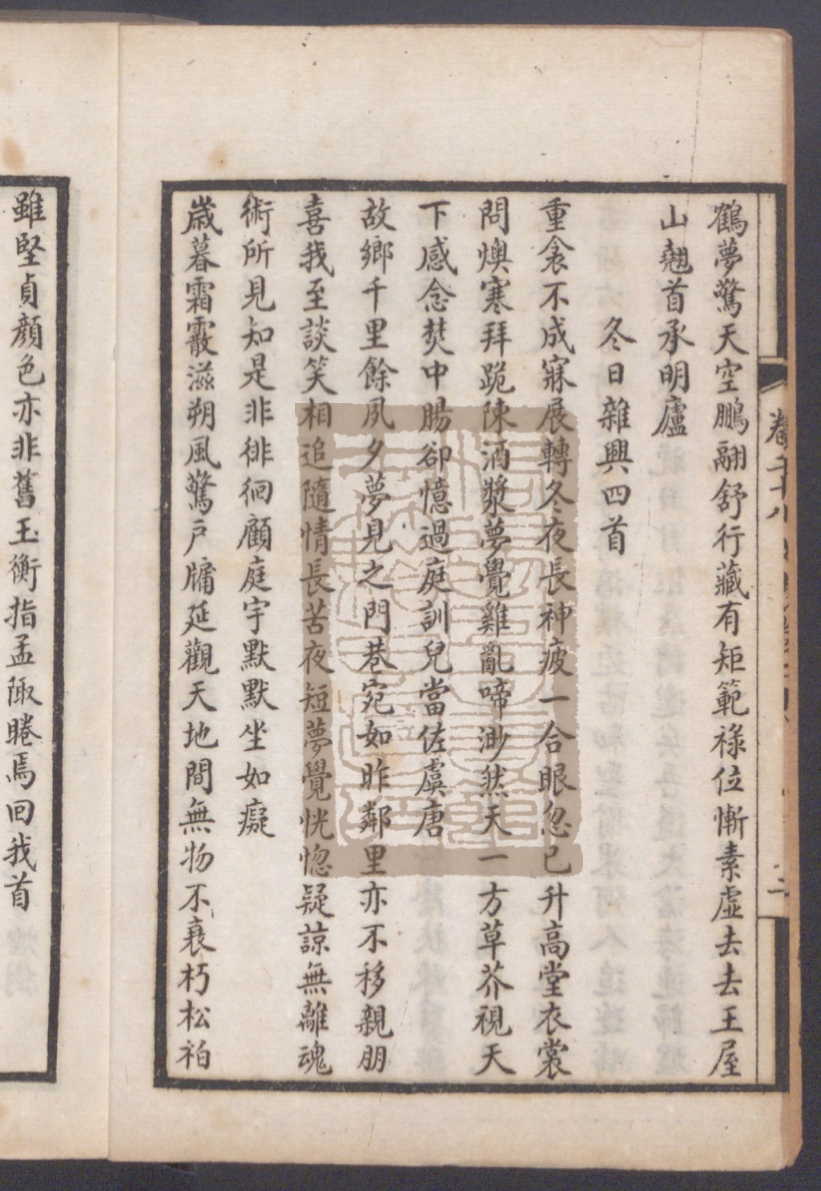 鶴夢驚天空鵬翮舒行藏有矩範祿位慚素虛去去王屋
山翹首承明廬
冬日雜興四首
重衾不成寐展轉冬夜長神疲一合眼忽已升高堂衣裳
問燠寒拜跪陳酒漿夢覺雞亂啼渺然天一方草芥視天
下感念焚中腸卻憶過庭訓兒當佐虞唐
故鄉千里餘夙夕夢見之門巷宛如昨鄰里亦不移親朋
喜我至談笑相追隨情長苦夜短夢覺恍惚疑諒無離魂
術所見知是非徘徊顧庭宇默默坐如癡
歲暮霜霰滋朔風驚戶牖延觀天地間無物不衰朽松柏
雖堅貞顏色亦非舊玉衡指孟陬睠焉回我首